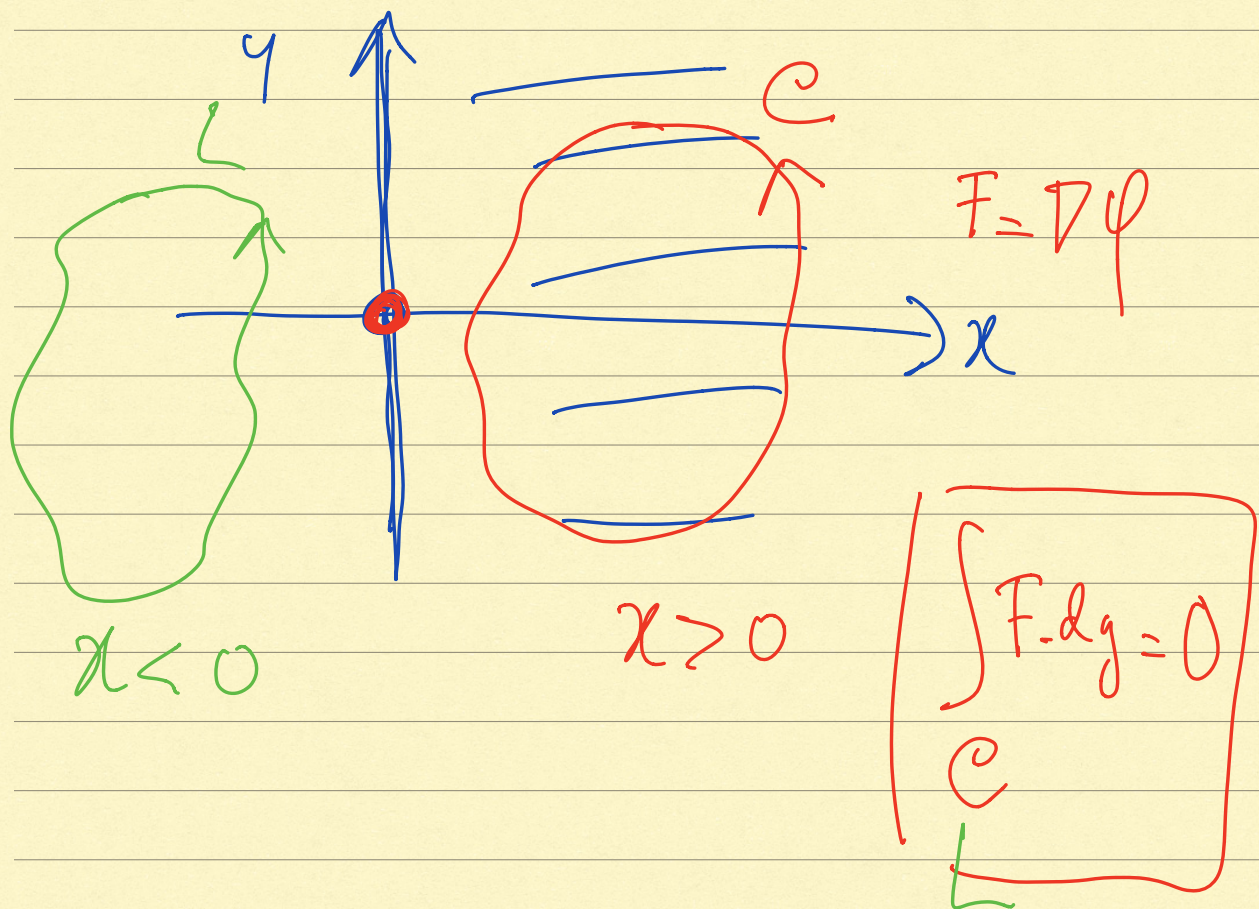 y
L
C
F = ∇φ
x
x < 0
x > 0
∫ F · dg = 0
C
L